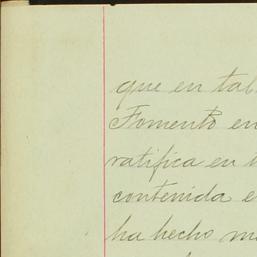 que en tal
Fomento en
ratifica en
contenida e
ha hecho m